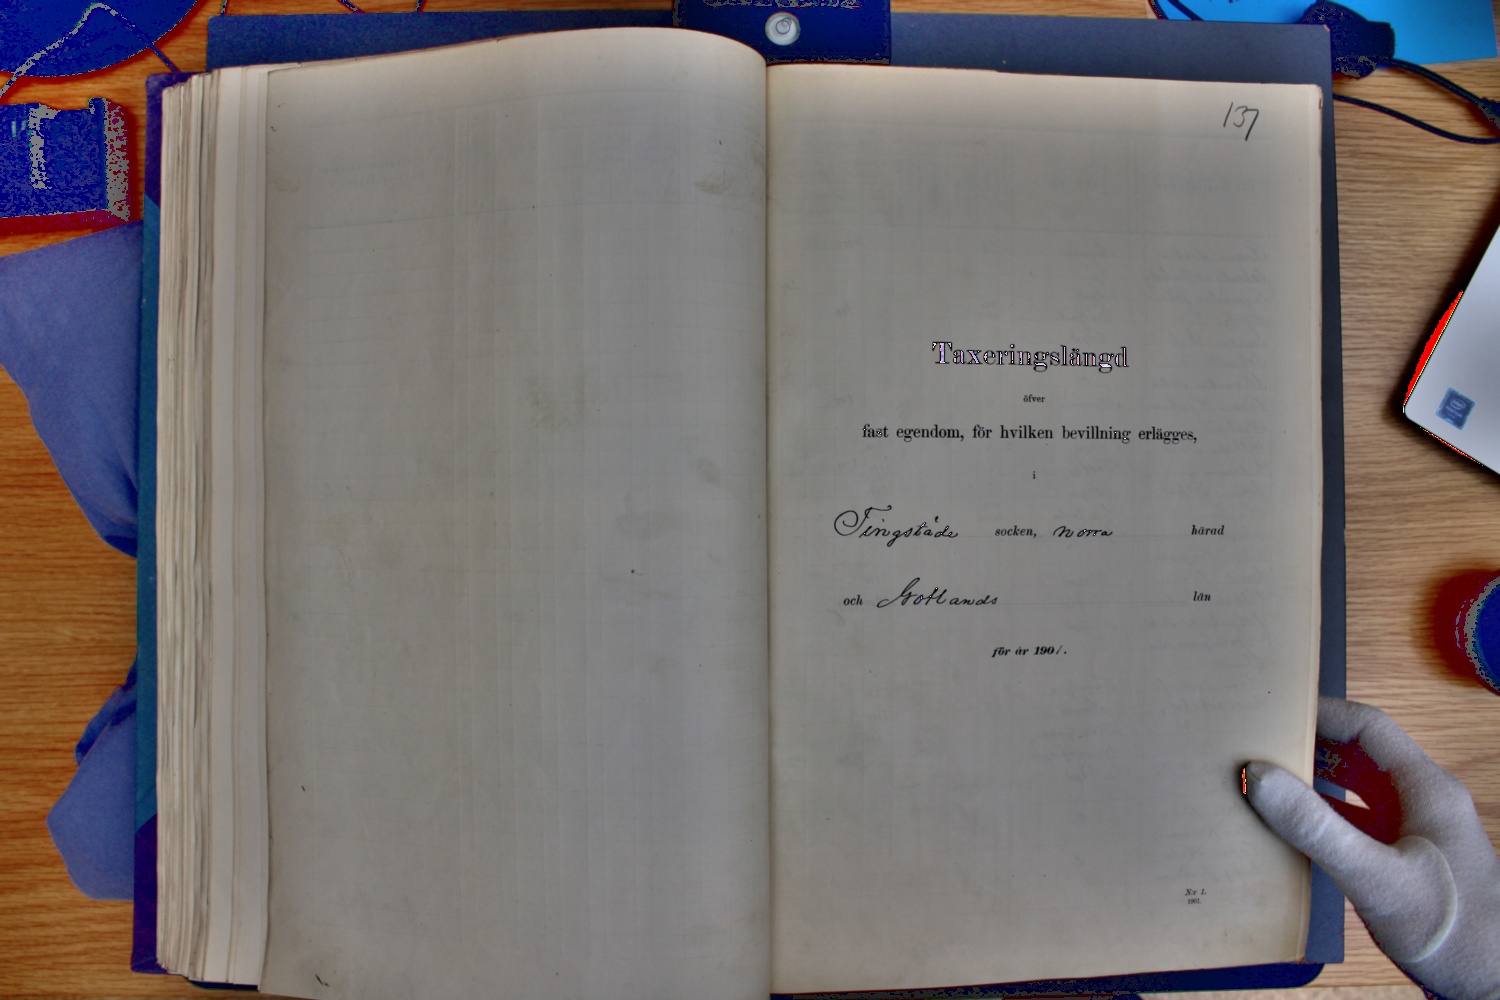 137
Taxeringslängd
öfver
fast egendom, för hvilken bevillning erlägges,
i
Tingstäde socken, norra härad
och Gotlands län
för år 1901.
N:r 1.
1901.